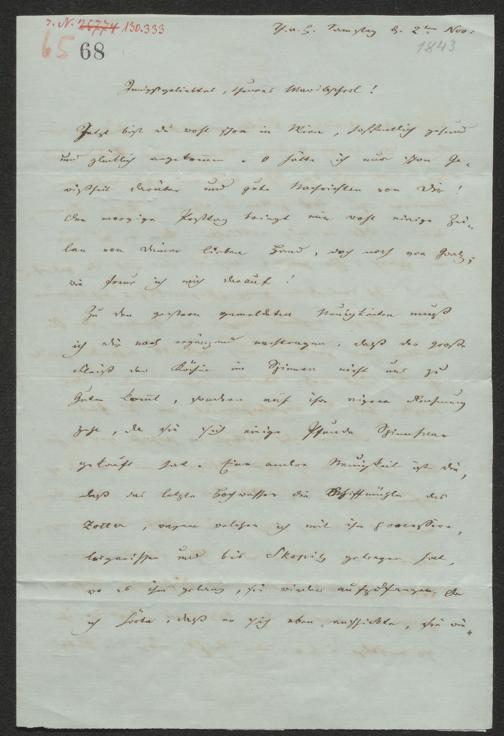 I. N. 76774 130.333
65 68
Samstag d. 2ten Nov.
1843
Innigstgeliebtes, theures Marilscherl!
Jetzt bist du wohl schon in Wien, hoffentlich gesund
und glücklich angekommen. O hätte ich nur schon Ge-
wißheit darüber und gute Nachrichten von Dir!
Der morgige Posttag bringt mir wohl einige Zei-
len von Deiner lieben Hand, doch noch von Gratz;
wie freue ich mich darauf!
Zu den gestern gemeldeten Neuigkeiten muß
ich Dir noch ergänzend nachtragen, daß der große
Fleiß der Köchin im Spinnen nicht uns zu
Guten kommt, sondern auf ihre eigene Rechnung
geht, da sie sich einige Pfunde
gekauft hat. Eine andere Neuigkeit ist die,
daß das letzte Hochwasser die Schiffmühle des
Zotter, wegen welcher ich mit ihm processire,
losgerissen und bis Skopitz getragen hat,
wo es ihm gelang, sie wieder aufzufangen. Da
ich hörte, daß er sich eben anschickte, sie wie-